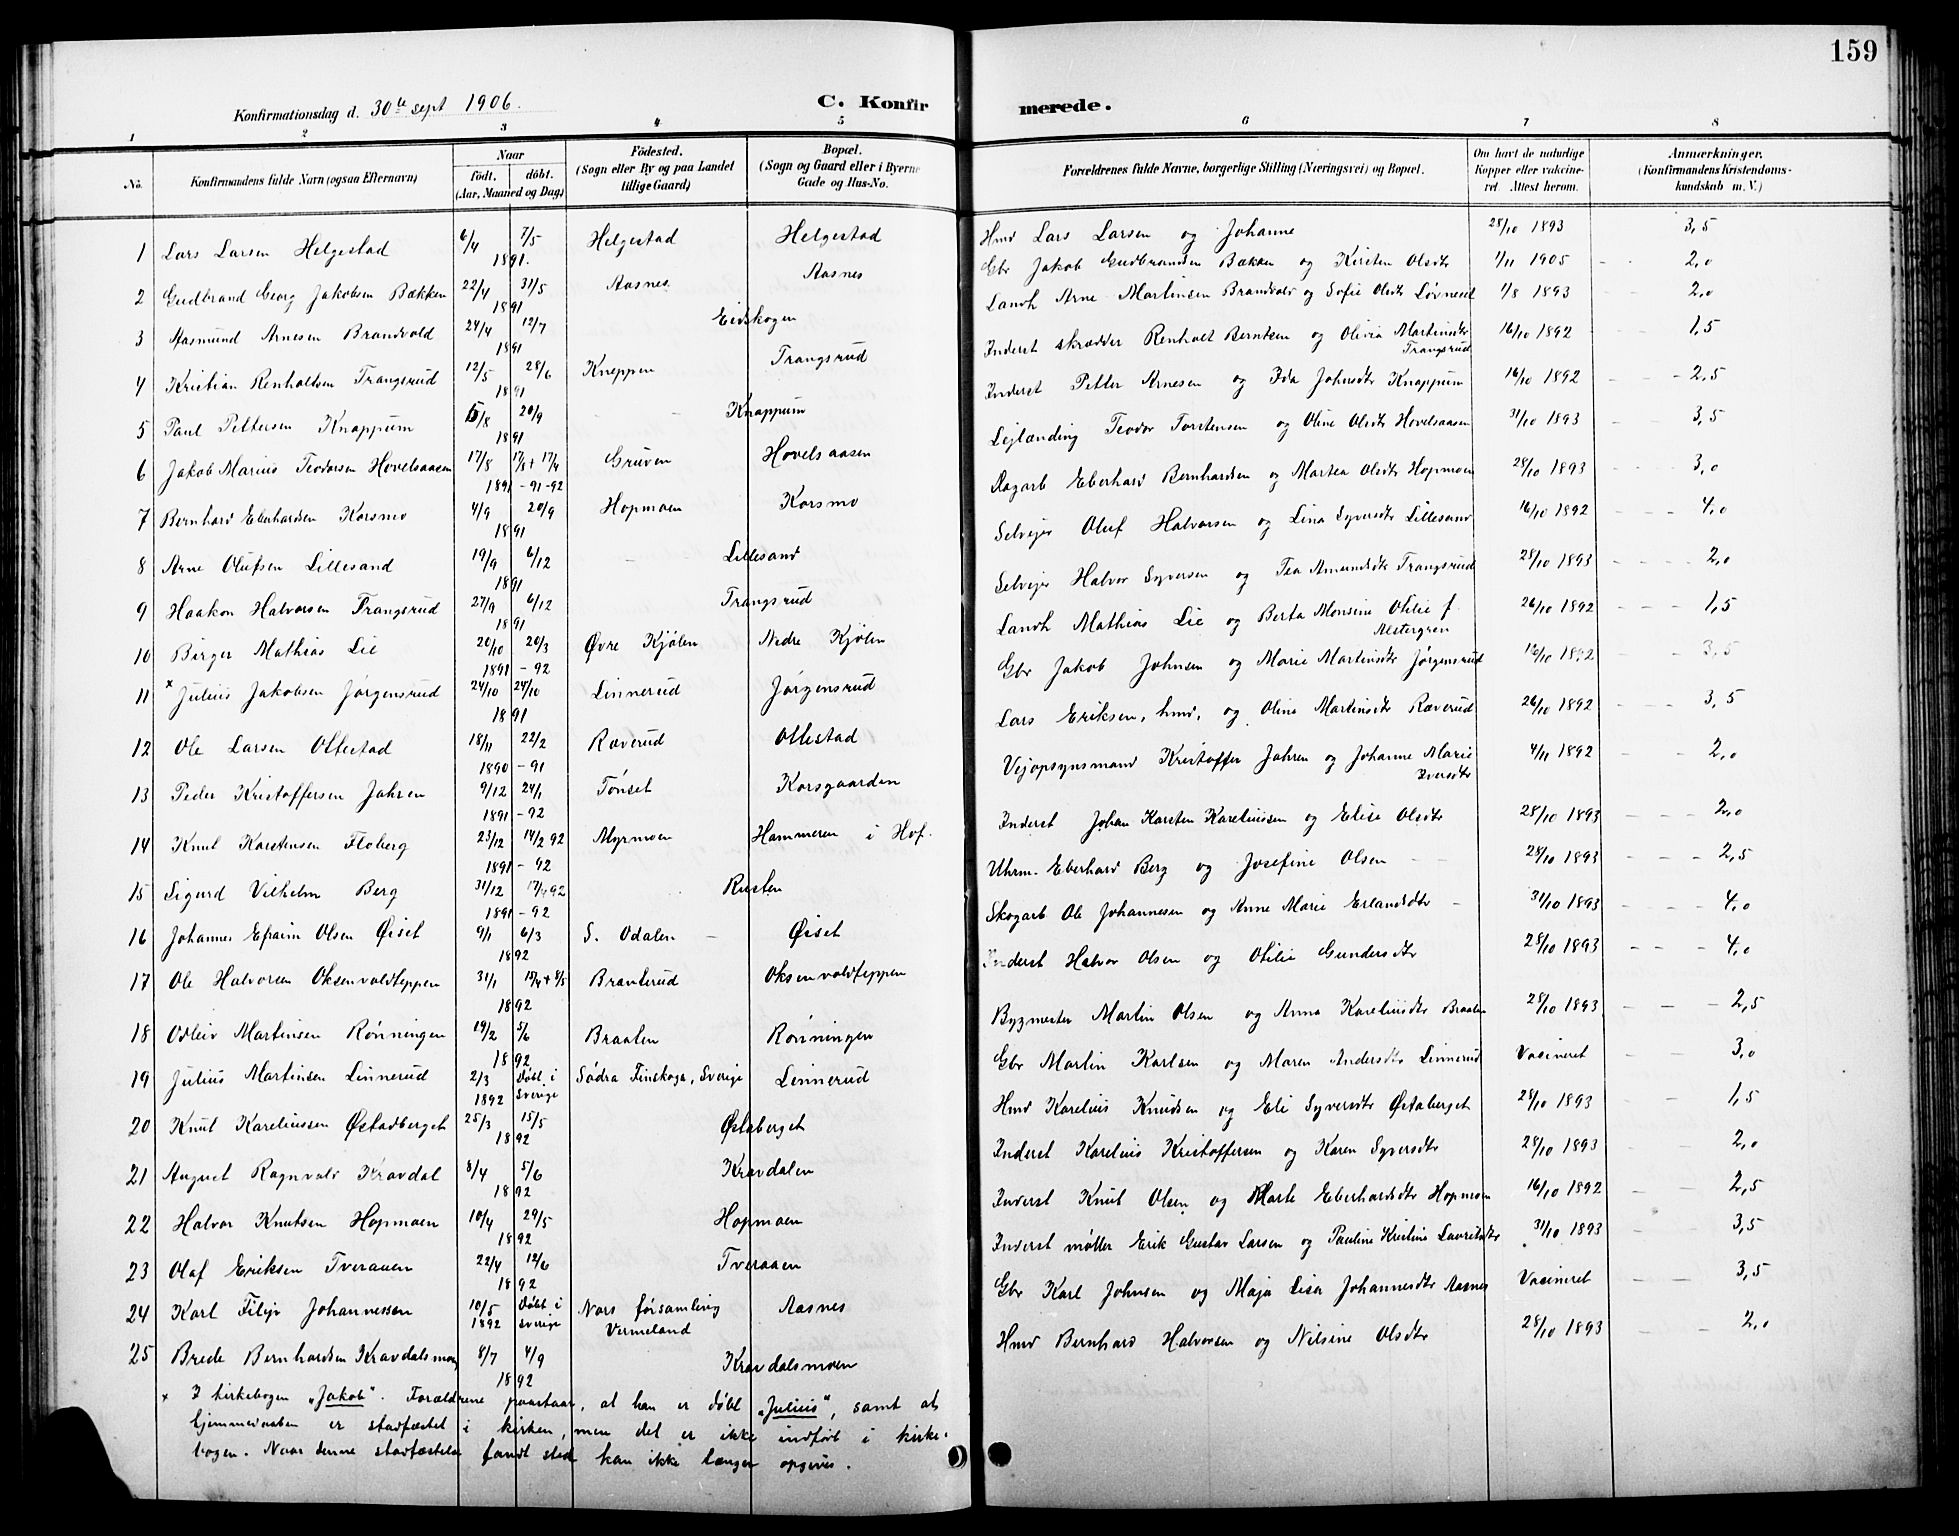 159
Konfirmationsdag d. 30te sept 1906.
C. Konfirmerede.
1 2 3 4 5 6 7 8
No.
Konfirmandens fulde Navn (ogsaa Efternavn)
Naar
født. døbt.
(Aar, Maaned og Dag)
Fødested.
(Sogn eller By og paa Landet tillige Gaard)
Bopæl.
(Sogn og Gaard eller i Byerne Gade og Hus-No.
Forældrenes fulde Navne, borgerlige Stilling (Næringsvei) og Bopæl.
Om havt de naturlige Kopper eller vakcineret. Attest herom.
Anmærkninger.
(Konfirmandens Kristendomskundskab m. V.)
1 Lars Larsen Helgestad 6/4 7/5 1891. Helgestad Helgestad Hmd Lars Larsen og Johanne 28/10 1893 3,5
2 Gudbrand Georg Jakobsen Bækken 22/4 31/5 1891 Aasnes Aasnes Gbr Jakob Gudbrandsen Bækken og Kirsten Olsdtr 1/11 1905 2,0
3 Aasmund Arnesen Brandvold 24/4 12/7 1891 Eidskogen Landh Arne Martinsen Brandvold og Sofie Olsdtr Løvneset 1/8 1893 2,0
4 Kristian Renholtsen Trangsrud 12/5 28/6 1891 Kneppen Trangsrud Inderst skrædder Renholt Berntsen og Olivia Martinsdtr Trangsrud 16/10 1892 1,5
5 Paul Pettersen Knappum 5/8 20/9 1891 Knappum Inderst Petter Arnesen og Ida Johnsdtr Knappum 16/10 1892 2,5
6 Jakob Marius Teodorsen Hovelsaasen 17/8 17/8 + 17/4 1891 - 91 - 92 Gruven Hovelsaasen Lejlænding Teodor Torstensen og Oline Olsdtr Hovelsaasen 31/10 1893 3,5
7 Bernhard Eberhardsen Korsmo 4/9 20/9 1891 Hopmoen Korsmo Dagarb Eberhard Bernhardsen og Martea Olsdtr Hopmoen 28/10 1893 3,0
8 Arne Olufsen Lillesand 19/9 6/12 1891 Lillesand Selvejer Oluf Halvorsen og Lina Syversdtr Lillesand 16/10 1892 4,0
9 Haakon Halvorsen Trangsrud 27/9 6/12 1891 Trangsrud Selvejer Halvor Syversen og Tea Amundsdtr Trangsrud 28/10 1893 2,0
10 Birger Mathias Lie 20/10 20/3 1891 - 92 Øvre Kjølen Nedre Kjølen Landh Mathias Lie og Berta Monsine Otilie f. Alstergren 26/10 1892 1,5
11 x Julius Jakobsen Jørgensrud 24/10 24/10 1891 Linnerud Jørgensrud Gbr Jakob Johnsen og Marie Martinsdtr Jørgensrud 16/10 1892 3,5
12 Ole Larsen Ollestad 18/11 22/2 1890 - 91 Ræverud Ollestad Lars Eriksen, hmd, og Oline Martinsdtr Ræverud 26/10 1892 3,5
13 Peder Kristoffersen Jahren 9/12 24/1 1891 - 92 Tønset Korsgaarden Vejopsynsmand Kristoffer Jahren og Johanne Marie Iversdtr 4/11 1892 2,0
14 Knut Karstensen Floberg 23/12 14/2 92 1891 - 92 Myrmoen Hammeren i Hof. Inderst Johan Karsten Kareliussen og Elise Olsdtr 28/10 1893 2,0
15 Sigurd Vilhelm Berg 31/12 92 1891 - 92 Rusten Uhrm. Eberhard Berg og Josefine Olsen 28/10 1893 2,5
16 Johannes Efraim Olsen Øiset 9/1 6/3 1892 S. Odalen Øiset Skogarb Ole Johannesen og Anne Marie Erlandsdtr 31/10 1893 4,0
17 Ole Halvorsen Oksenvoldteppen 31/1 1892 Bravterud Oksenvoldteppen Inderst Halvor Olsen og Otilie Gundersdtr 28/10 1893 4,0
18 Odleiv Martinsen Rønningen 19/2 5/6 1892 Braaten Rønningen Bygmester Martin Olsen og Anna Kareliusdtr Braaten 28/10 1893 2,5
19 Julius Martinsen Linnerud 2/3 1892 Døbt i Sverige Södra Finskoga, Sverige Linnerud Gbr Martin Karlsen og Maren Andersdtr Linnerud Vacineret 3,0
20 Knut Kareliussen Østadberget 25/3 15/5 1892 Østaberget Hmd Karelius Knudsen og Eli Syversdtr Østaberget 28/10 1893 1,5
21 August Ragnvald Kravdal 8/4 5/6 1892 Kravdalen Inderst Karelius Kristoffersen og Karen Syversdtr 28/10 1893 2,0
22 Halvor Knutsen Hopmoen 10/4 29/5 1892 Hopmoen Inderst Knut Olsen og Marte Eberhardsdtr Hopmoen 16/10 1892 2,5
23 Olaf Eriksen Tveraaen 22/4 12/6 1892 Tveraaen Inderst møller Erik Gustav Larsen og Pauline Kristine Lauritsdtr 31/10 1893 3,5
24 Karl Filip Johannessen 10/5 1892 Døbt i Sverige Nors församling Vermeland Aasnes Gbr Karl Johnsen og Maja Lisa Johannesdtr Aasnes Vacineret 3,5
25 Brede Bernhardsen Kravdalsmoen 8/7 4/9 1892 Kravdalsmoen Hmd Bernhard Halvorsen og Nilsine Olsdtr 28/10 1893 2,0
x I kirkebogen "Jakob". Forældrene paastaar, at han er døbt "Julius", samt at
hjemmedaaben er stadfæstet i kirken, men det er ikke indført i kirke-
bogen. Naar denne stadfæstelse fandt sted kan ikke længer opgives.